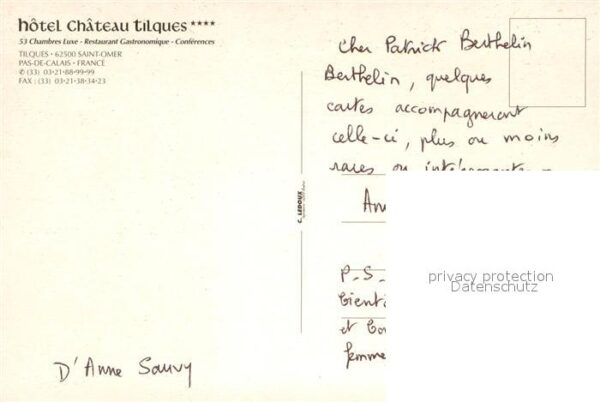 hôtel Château tilques ****
53 Chambres Luxe - Restaurant Gastronomique - Conférences
TILQUES • 62500 SAINT-OMER
PAS-DE-CALAIS • FRANCE
✆ (33) 03•21•88•99•99
FAX : (33) 03•21•38•34•23
C. LEDOUX
D'Anne Sauvy
Cher Patrick Berthelin
Berthelin, quelques
cartes accompagneront
celle-ci, plus ou moins
rares ou
P-S-
et
femme
privacy protection
Datenschutz